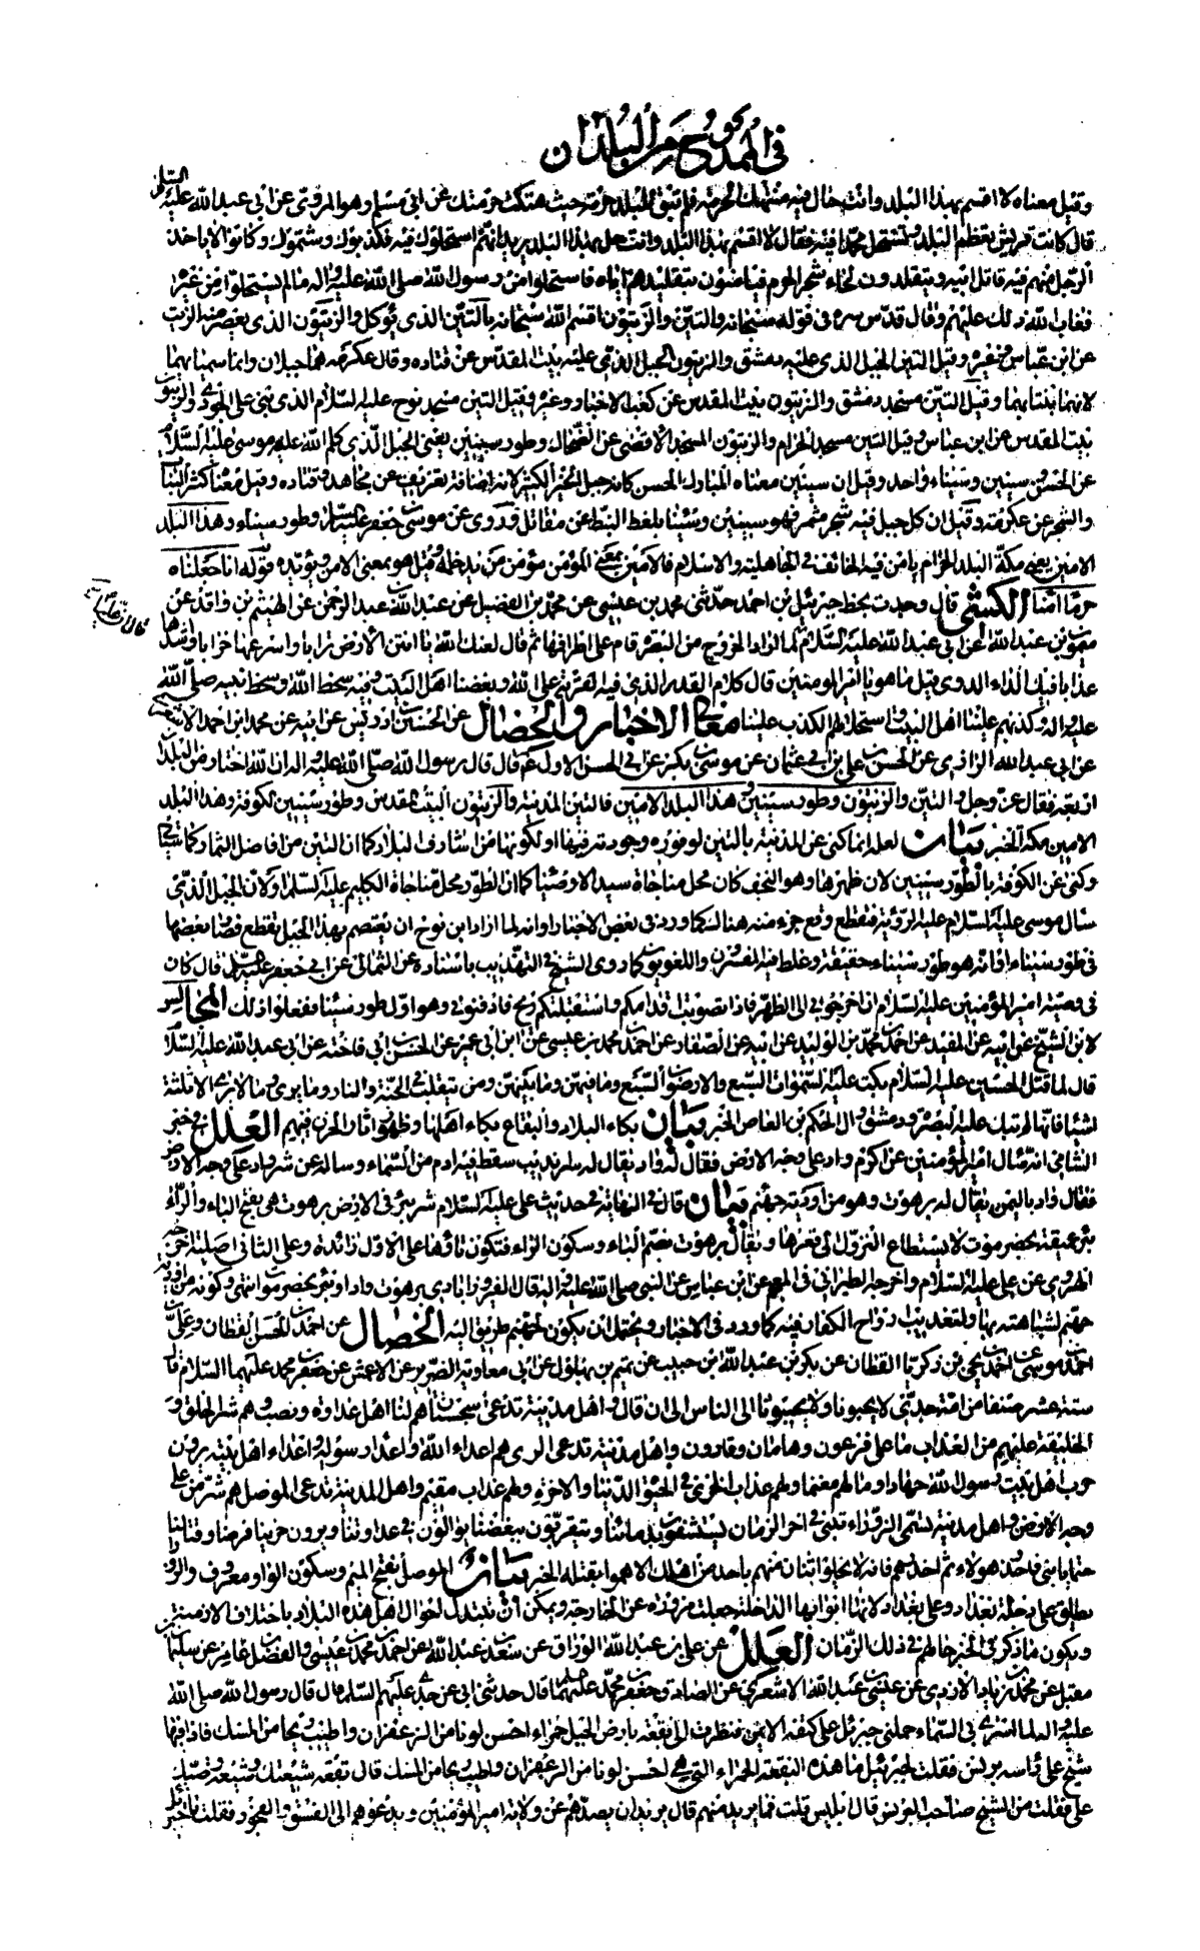 في الممدوح من البلدان
وقيل معناه لا اقسم بهذا البلد وانت حال فيه منتهك الحرمة فلم تبق للبلد حرمة حيث هتكت حرمتك عن ابي مسلم وهو المروي عن ابي عبد الله عليه السلم
قال كانت قريش يعظم البلد وتستحل محمدا فيه فقال لا اقسم بهذا البلد وانت حل بهذا البلد يريد انهم استحلوك فيه فكذبوك وشتموك وكانوا لا ياخذ
الرجل منهم فيه قاتل ابيه ويتقلدون لحاء شجر الحرم فيامنون بتقليدهم اياه فاستحلوا من رسول الله صلى الله عليه واله ما لم يستحلوا من غيره
فعاب الله ذلك عليهم وقال قدس سره في قوله سبحانه والتين والزيتون اقسم الله سبحانه بالتين الذي يؤكل والزيتون الذي يعصر منه الزيت
عن ابن عباس وغيره وقيل التين الجبل الذي عليه دمشق والزيتون الجبل الذي عليه بيت المقدس عن قتاده وقال عكرمه هما جبلان وانما سميا بهما
لانهما ينبتا بهما وقيل التين مسجد دمشق والزيتون بيت المقدس عن كعب الاحبار وغيره وقيل التين مسجد نوح عليه السلام الذي بني على الجودي والزيتون
بيت المقدس عن ابن عباس وقيل التين مسجد الحرام والزيتون المسجد الاقصى عن الضحاك وطور سينين يعني الجبل الذي كلم الله عليه موسى عليه السلام
عن الحسن وسينين وسيناء واحد وقيل ان سينين معناه المبارك الحسن كانه جبل الخير الكثير لانه اضافة تعريف عن مجاهد وقتاده وقيل معناه كثير النبات
والشجر عن عكرمة وقيل ان كل جبل فيه شجر مثمر فهو سينين وسينا بلغط النبط عن مقاتل وروى عن موسى بن جعفر عليه السلم وطور سيناء وهذا البلد
الامين يعني مكة البلد الحرام يامن فيه الخائف في الجاهلية والاسلام فالامين بمعنى المؤمن مؤمن من يدخله وقيل هو بمعنى الامن ويؤيده قوله انا جعلناه
حرما امنا الكشي قال وجدت بخط جبرئيل بن احمد حدثني محمد بن عيسى عن محمد بن الفضيل عن عبد الله عبد الرحمن عن الهيثم بن واقد عن
ميمون بن عبد الله عن ابي عبد الله عليه السلام لما اراد الخروج من البصره قام على اطرافها ثم قال لعنك الله يا انتن الارض ترابا واسرعها خرابا واشدها
عذابا فيك الداء الدوي قيل ما هو يا امير المومنين قال كلام القدر الذي فيه الفرية على الله وبغضنا اهل البيت وفيه سخط الله وسخط نبيه صلى الله
عليه واله وكذبهم علينا اهل البيت واستحلالهم الكذب علينا معاني الاخبار والخصال عن الحسين ادريس عن ابيه عن محمد ابن احمد الاشعري
عن ابي عبد الله الرازي عن الحسن بن علي بن ابي عثمان عن موسى بن بكر عن ابي الحسن الاول ع قال قال رسول الله صلى الله عليه واله ان الله اختار من البلدان
اربعة فقال عز وجل والتين والزيتون وطور سينين وهذا البلد الامين فالتين المدينة والزيتون البيت المقدس وطور سينين الكوفة وهذا البلد
الامين مكة الخبر بيان لعله انما كنى عن المدينة بالتين لوفوره وجودته فيها او لكونها من اشارف البلاد كما ان التين من افاضل الثمار
وكنى عن الكوفه بالطور سينين لان ظهرها وهو النجف كان محل مناجاة سيد الاوصياء كما ان الطور محل مناجاة الكليم عليه السلم او لان الجبل الذي
سال موسى عليه السلام عليه الرؤية فتقطع وقع جزء منه هناك كما ورد في بعض الاخبار او انه لما اراد ابن نوح ان يعتصم بهذا الجبل تقطع فصار بعضها
في طور سيناء او انه هو طور سيناء حقيقة وغلط فيه المفسرون واللغويون كما روى الشيخ في التهذيب باسناده عن الثمالي عن ابي جعفر عليه السلم قال كان
في وصية امير المؤمنين عليه السلام ان اخرجوني الى الظهر فاذا تصوبت اقدامكم واستقبلتكم ريح فادفنوني وهو اول طور سينا ففعلوا ذلك المجالس
لابن الشيخ عن ابيه عن المفيد عن احمد بن محمد بن الوليد عن ابيه عن الصفار عن احمد بن محمد بن عيسى عن ابن ابي عمير عن الحسين بن ابي فاخته عن ابي عبد الله عليه السلام
قال لما قتل الحسين عليه السلام بكت عليه السموات السبع والارضون السبع وما فيهن وما بينهن ومن يتقلب في الجنة والنار وما يرى وما لا يرى الا ثلثة
اشياء فانها لم تبك عليه البصرة ودمشق وال الحكم بن العاص الخبر بيان بكاء البلاد والبقاع بكاء اهلها وظهور اثار الحزن فيهم العلل في خبر
الشامي انه سال امير المؤمنين عن اكرم واد على وجه الارض فقال له واد يقال له سرنديب سقط فيه ادم من السماء وساله عن شر واد على وجه الارض
فقال واد باليمن يقال له برهوت وهو من اودية جهنم بيان قال في النهاية في حديث علي عليه السلام شر بئر في الارض برهوت هي بفتح الباء والراء
بئر عميقة بحضرموت لا يستطاع النزول الى قعرها ويقال برهوت بضم الباء وسكون الراء فتكون تاؤها على الاول زائدة وعلى الثاني اصلية اخرجه
الهروي عن علي عليه السلام واخرجه الطبراني في المعجم عن ابن عباس عن النبي صلى الله عليه واله قال الفيروزابادي برهوت واد او بئر بحضرموت انتهى وكونه من اودية
جهنم لشباهته بها ولتعذيب ارواح الكفار فيه كما ورد في الاخبار ويحتمل ان يكون لجهنم طريق اليه الخصال عن احمد بن الحسن القطان وعلي بن
احمد بن موسى عن احمد بن يحيى بن زكريا القطان عن بكر بن عبد الله ابن حبيب عن تميم بن بهلول عن ابي معاوية الضرير عن الاعمش عن جعفر بن محمد عليهما السلام قال
ستة عشر صنفا من امة جدي لا يحبونا ولا يحببونا الى الناس الى ان قال واهل مدينة تدعى سجستان هم لنا اهل عداوة ونصب وهم شر الخلق و
الخليقة عليهم من العذاب ما على فرعون وهامان وقارون واهل مدينة تدعى الري هم اعداء الله واعداء رسوله واعداء اهل بيته يرون
حرب اهل بيت رسول الله جهادا ومالهم مغنما ولهم عذاب الخزي في الحيوة الدنيا والاخرة ولهم عذاب مقيم واهل المدينة تدعى الموصل هم شر من على
وجه الارض واهل مدينة تسمى الزوراء تبنى في اخر الزمان يستشفون بدمائنا ويتقربون ببغضنا يوالون في عداوتنا ويرون حربنا فرضا وقتالنا
حتما يا بني فاحذر هولاء ثم احذرهم فانه لا يخلو اثنان منهم باحد من اهلك الا هموا بقتله الخبر بيان الموصل بفتح الميم وسكون الواو معروف والزوراء
يطلق على دجلة بغداد وعلى بغداد لانها ابوابها الداخلة جعلت مزورة عن الخارجة ويمكن ان تتبدل احوال اهل هذه البلاد باختلاف الازمنة
ويكون ما ذكر في الخبر حالهم في ذلك الزمان العلل عن علي بن عبد الله الوراق عن سعد بن عبد الله عن احمد بن محمد بن عيسى والفضل بن عامر عن سليمان
مقبل عن محمد بن زياد الازدي عن عيسى بن عبد الله الاشعري عن الصادق جعفر بن محمد عليهما قال حدثني ابي عن جدي عليهم السلم قال قال رسول الله صلى الله
عليه واله لما اسري بي الى السماء حملني جبرئل على كتفه الايمن فنظرت الى بقعة بارض الجبل حمراء احسن لونا من الزعفران واطيب ريحا من المسك فاذا فيها
شيخ على راسه برنس فقلت لجبرئيل ما هذه البقعة الحمراء التي هي احسن لونا من الزعفران واطيب ريحا من المسك قال بقعة شيعتك وشيعة وصيك
علي فقلت من الشيخ صاحب البرنس قال ابليس قلت فما يريد منهم قال يريد ان يصدهم عن ولاية امير المؤمنين ويدعوهم الى الفسق والفجور فقلت يا جبرئيل